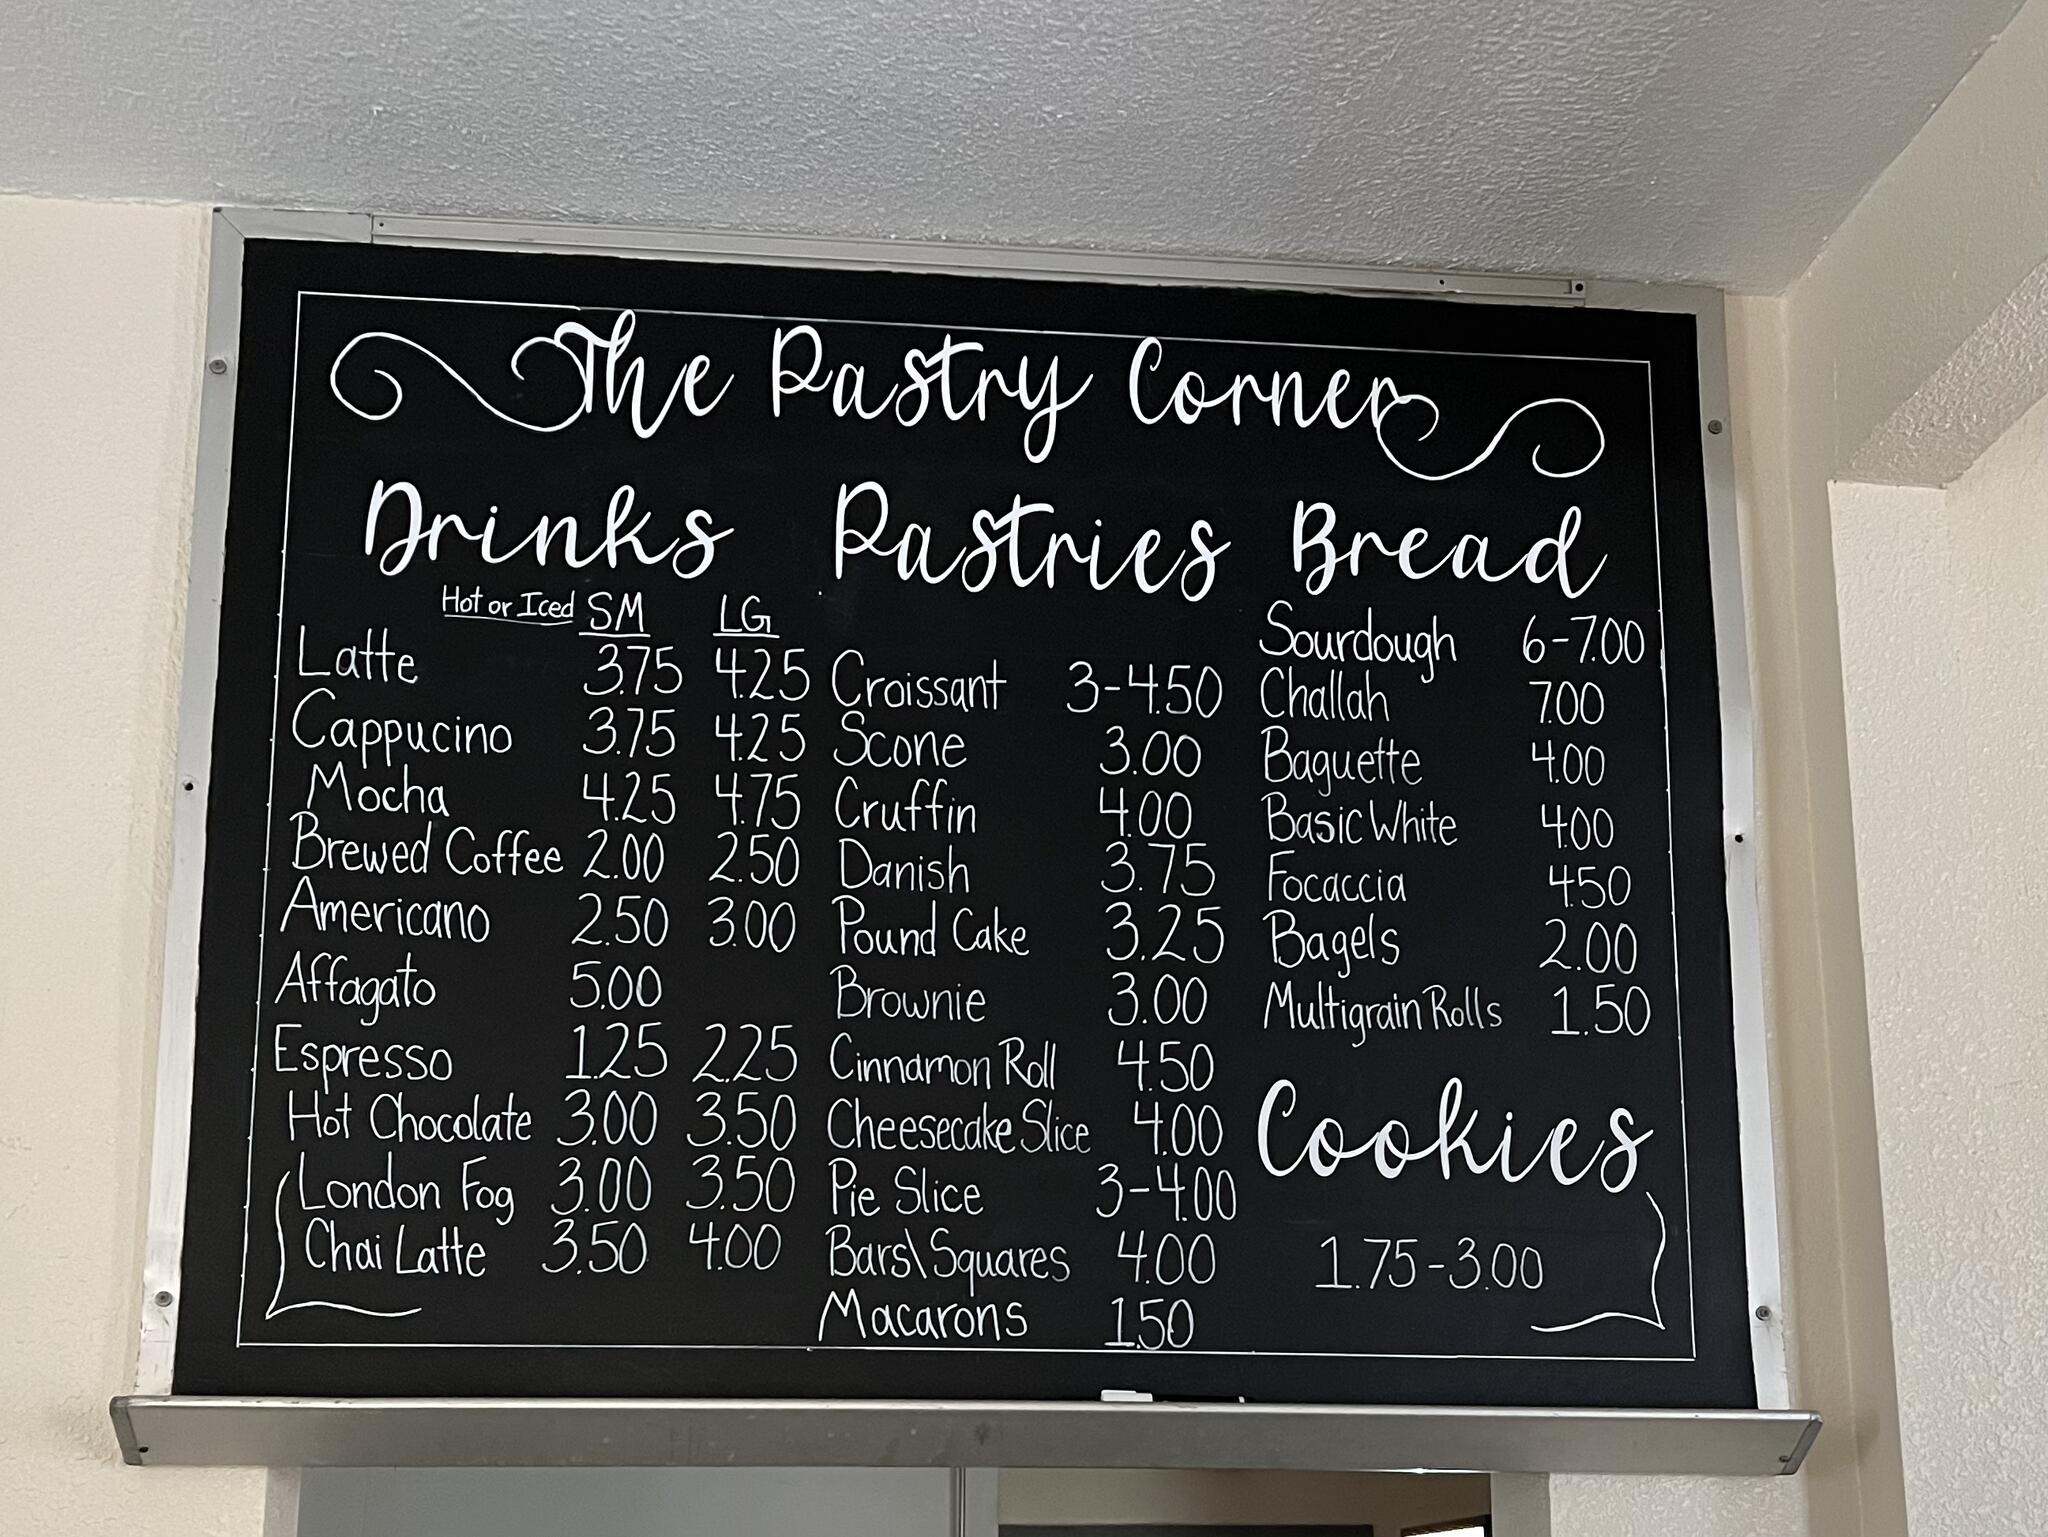 The Pastry Corner
Drinks
Hot or Iced SM LG
Latte 3.75 4.25
Cappucino 3.75 4.25
Mocha 4.25 4.75
Brewed Coffee 2.00 2.50
Americano 2.50 3.00
Affagato 5.00
Espresso 1.25 2.25
Hot Chocolate 3.00 3.50
London Fog 3.00 3.50
Chai Latte 3.50 4.00
Pastries
Croissant 3-4.50
Scone 3.00
Cruffin 4.00
Danish 3.75
Pound Cake 3.25
Brownie 3.00
Cinnamon Roll 4.50
Cheesecake Slice 4.00
Pie Slice 3-4.00
Bars\Squares 4.00
Macarons 1.50
Bread
Sourdough 6-7.00
Challah 7.00
Baguette 4.00
Basic White 4.00
Focaccia 4.50
Bagels 2.00
Multigrain Rolls 1.50
Cookies
1.75-3.00